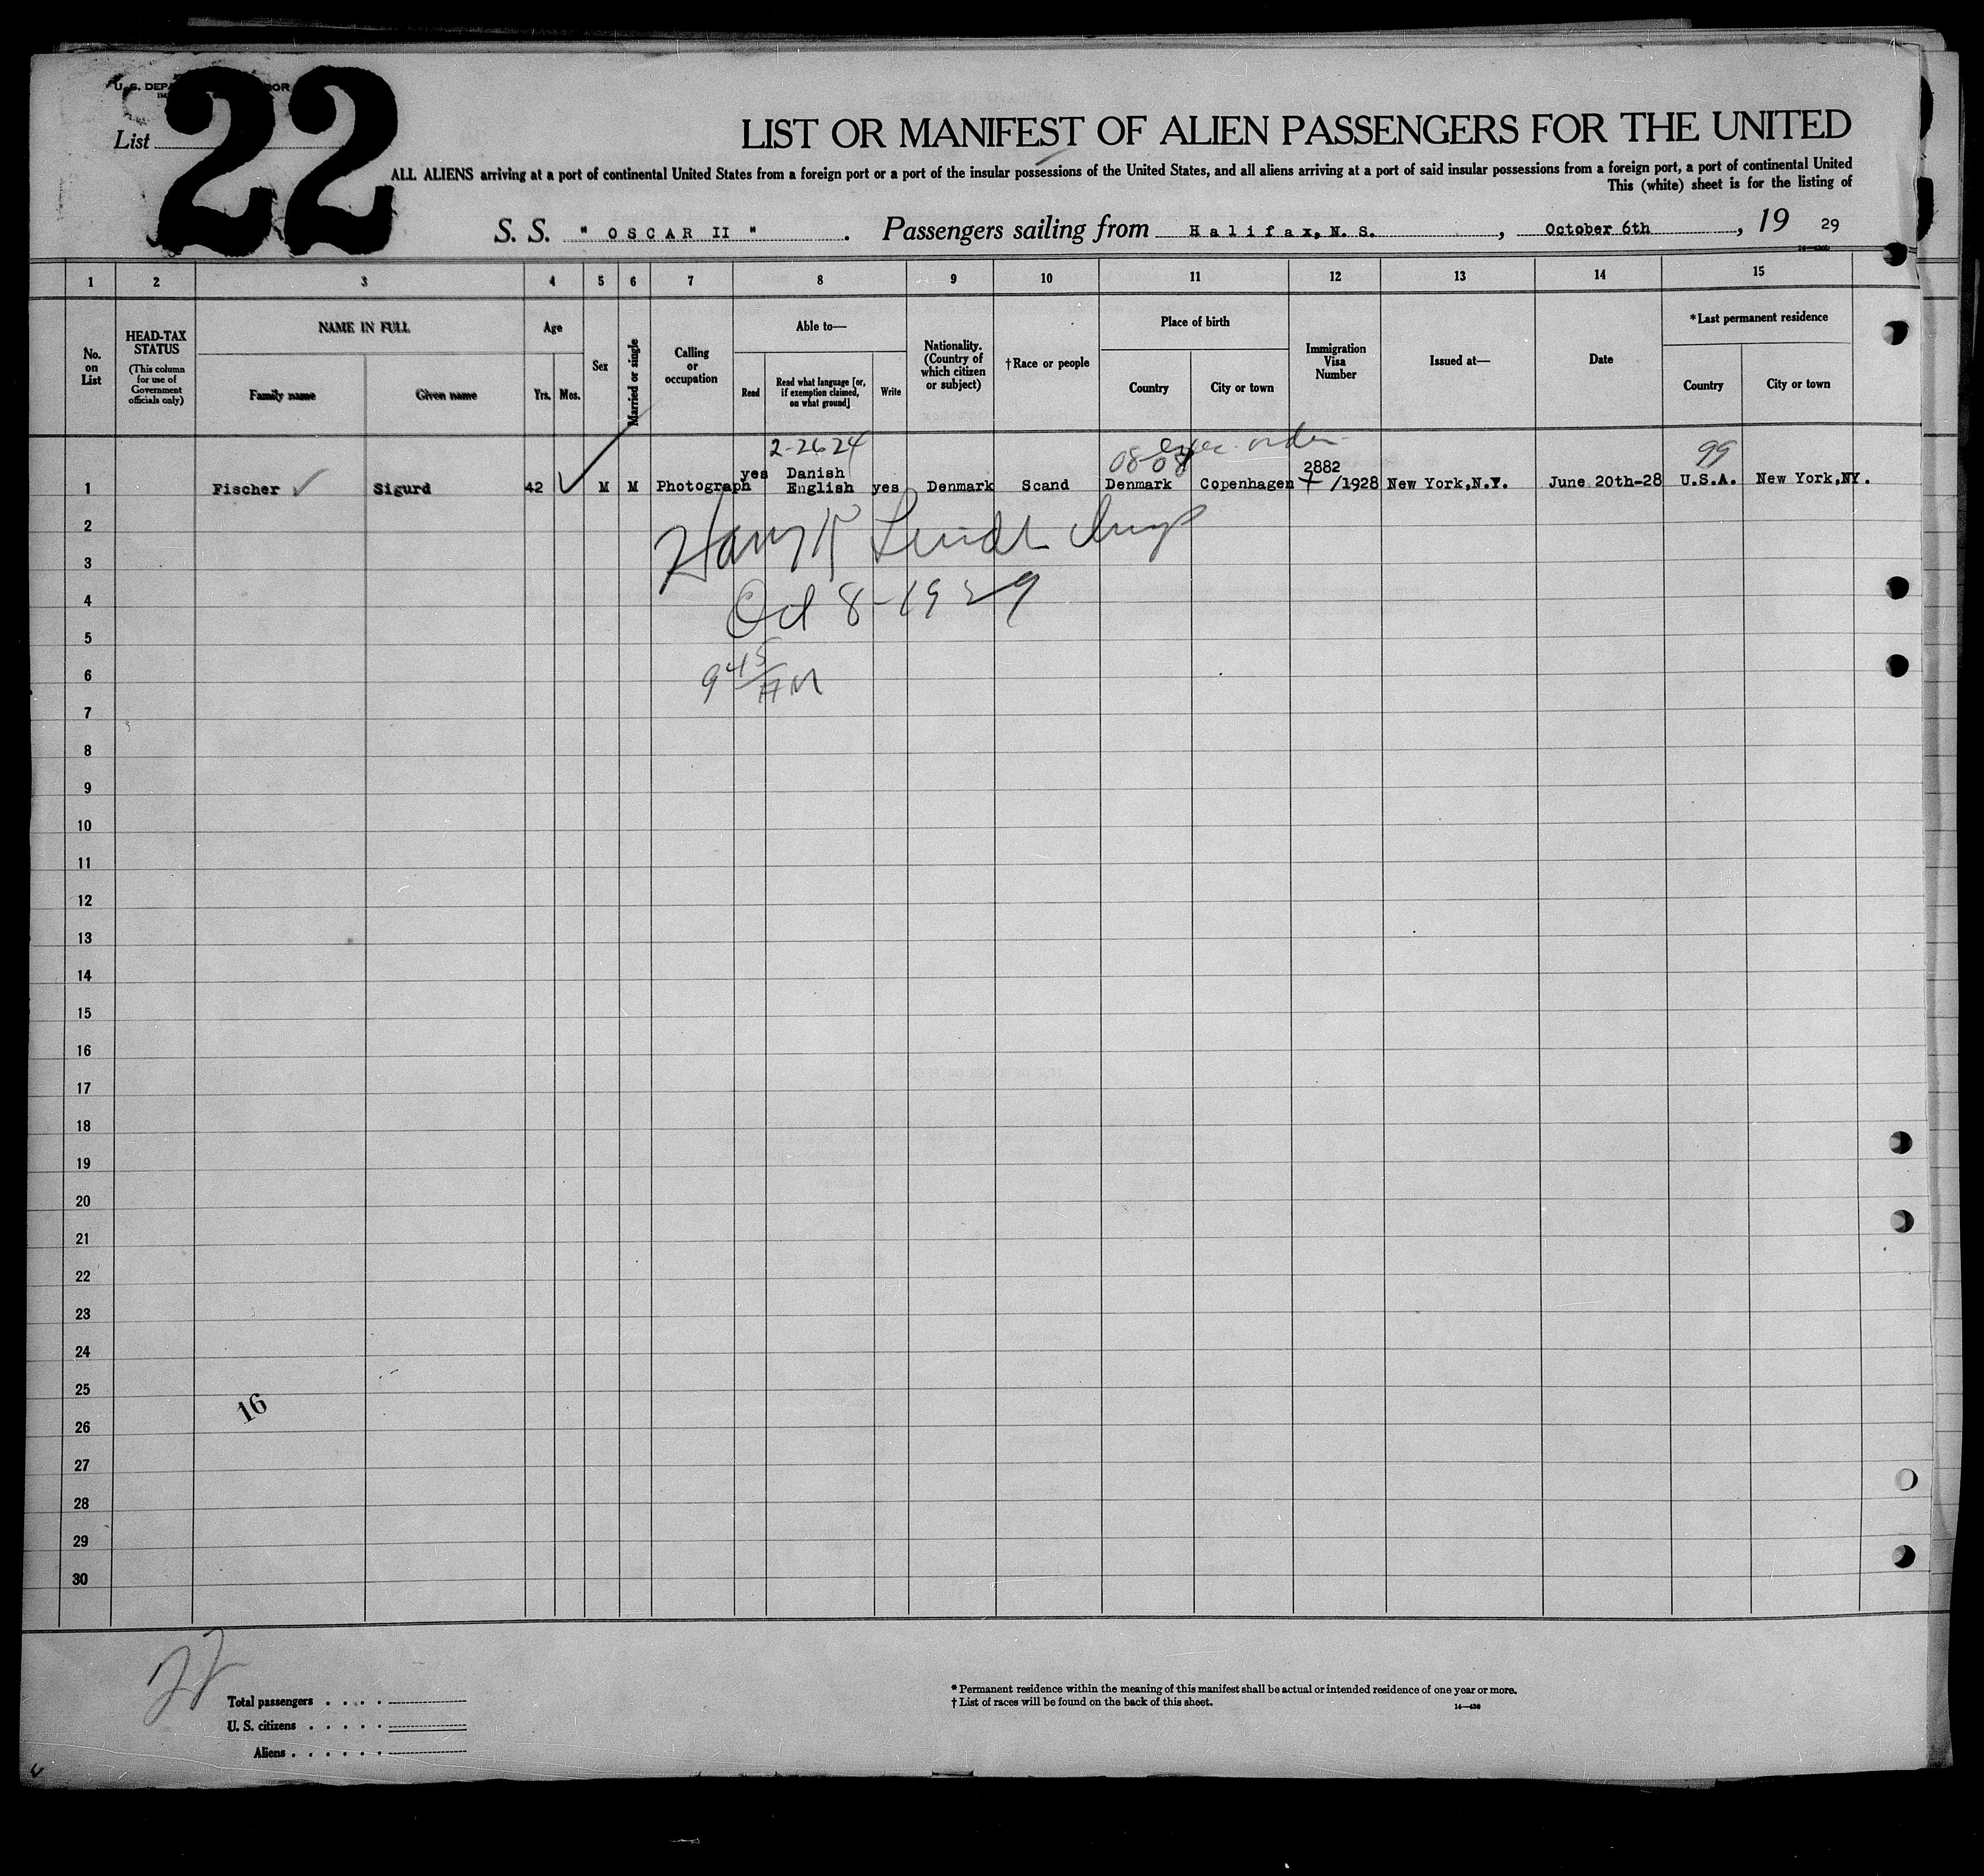 22
U. S. DEPA OR
List
LIST OR MANIFEST OF ALIEN PASSENGERS FOR THE UNITED
ALL ALIENS arriving at a port of continental United States from a foreign port or a port of the insular possessions of the United States, and all aliens arriving at a port of said insular possessions from a foreign port, a port of continental United
This (white) sheet is for the listing of
S. S. " OSCAR II ". Passengers sailing from Halifax, N. S., October 6th, 19 29
1 2 3 4 5 6 7 8 9 10 11 12 13 14 15
No. on List
HEAD-TAX STATUS
(This column for use of Government officials only)
NAME IN FULL
Family name
Given name
Age
Yrs.
Mos.
Sex
Married or single
Calling or occupation
Able to—
Read
Read what language [or, if exemption claimed, on what ground]
Write
Nationality. (Country of which citizen or subject)
†Race or people
Place of birth
Country
City or town
Immigration Visa Number
Issued at—
Date
*Last permanent residence
Country
City or town
2-2624
order
99
1 Fischer Sigurd 42 M M Photograph yes Danish English yes Denmark Scand Denmark Copenhagen 2882 /1928 New York,N.Y. June 20th-28 U.S.A. New York,NY.
2
3
4
5
6
7
8
9
10
11
12
13
14
15
16
17
18
19
20
21
22
23
24
25
26
27
28
29
30
Oct 8-1929
9 45 AM
16
Total passengers
U. S. citizens
Aliens
* Permanent residence within the meaning of this manifest shall be actual or intended residence of one year or more.
† List of races will be found on the back of this sheet.
14—430